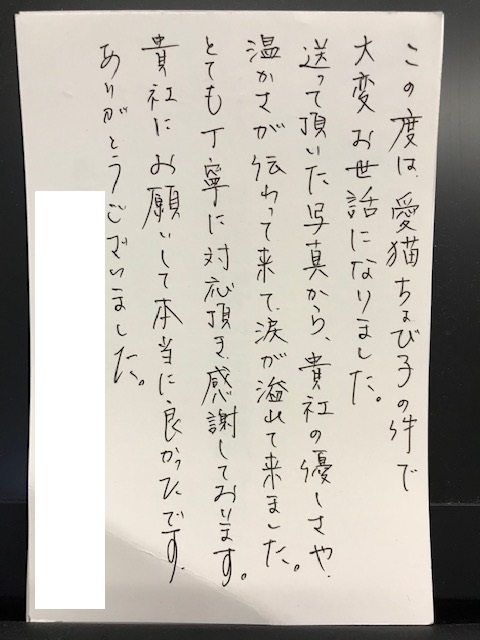 この度は、愛猫ちょび子の件で
大変お世話になりました。
送って頂いた写真から、貴社の優しさや、
温かさが伝わって来て、涙が溢れて来ました。
とても丁寧に対応頂き、感謝しております。
貴社にお願いして本当に良かったです。
ありがとうございました。